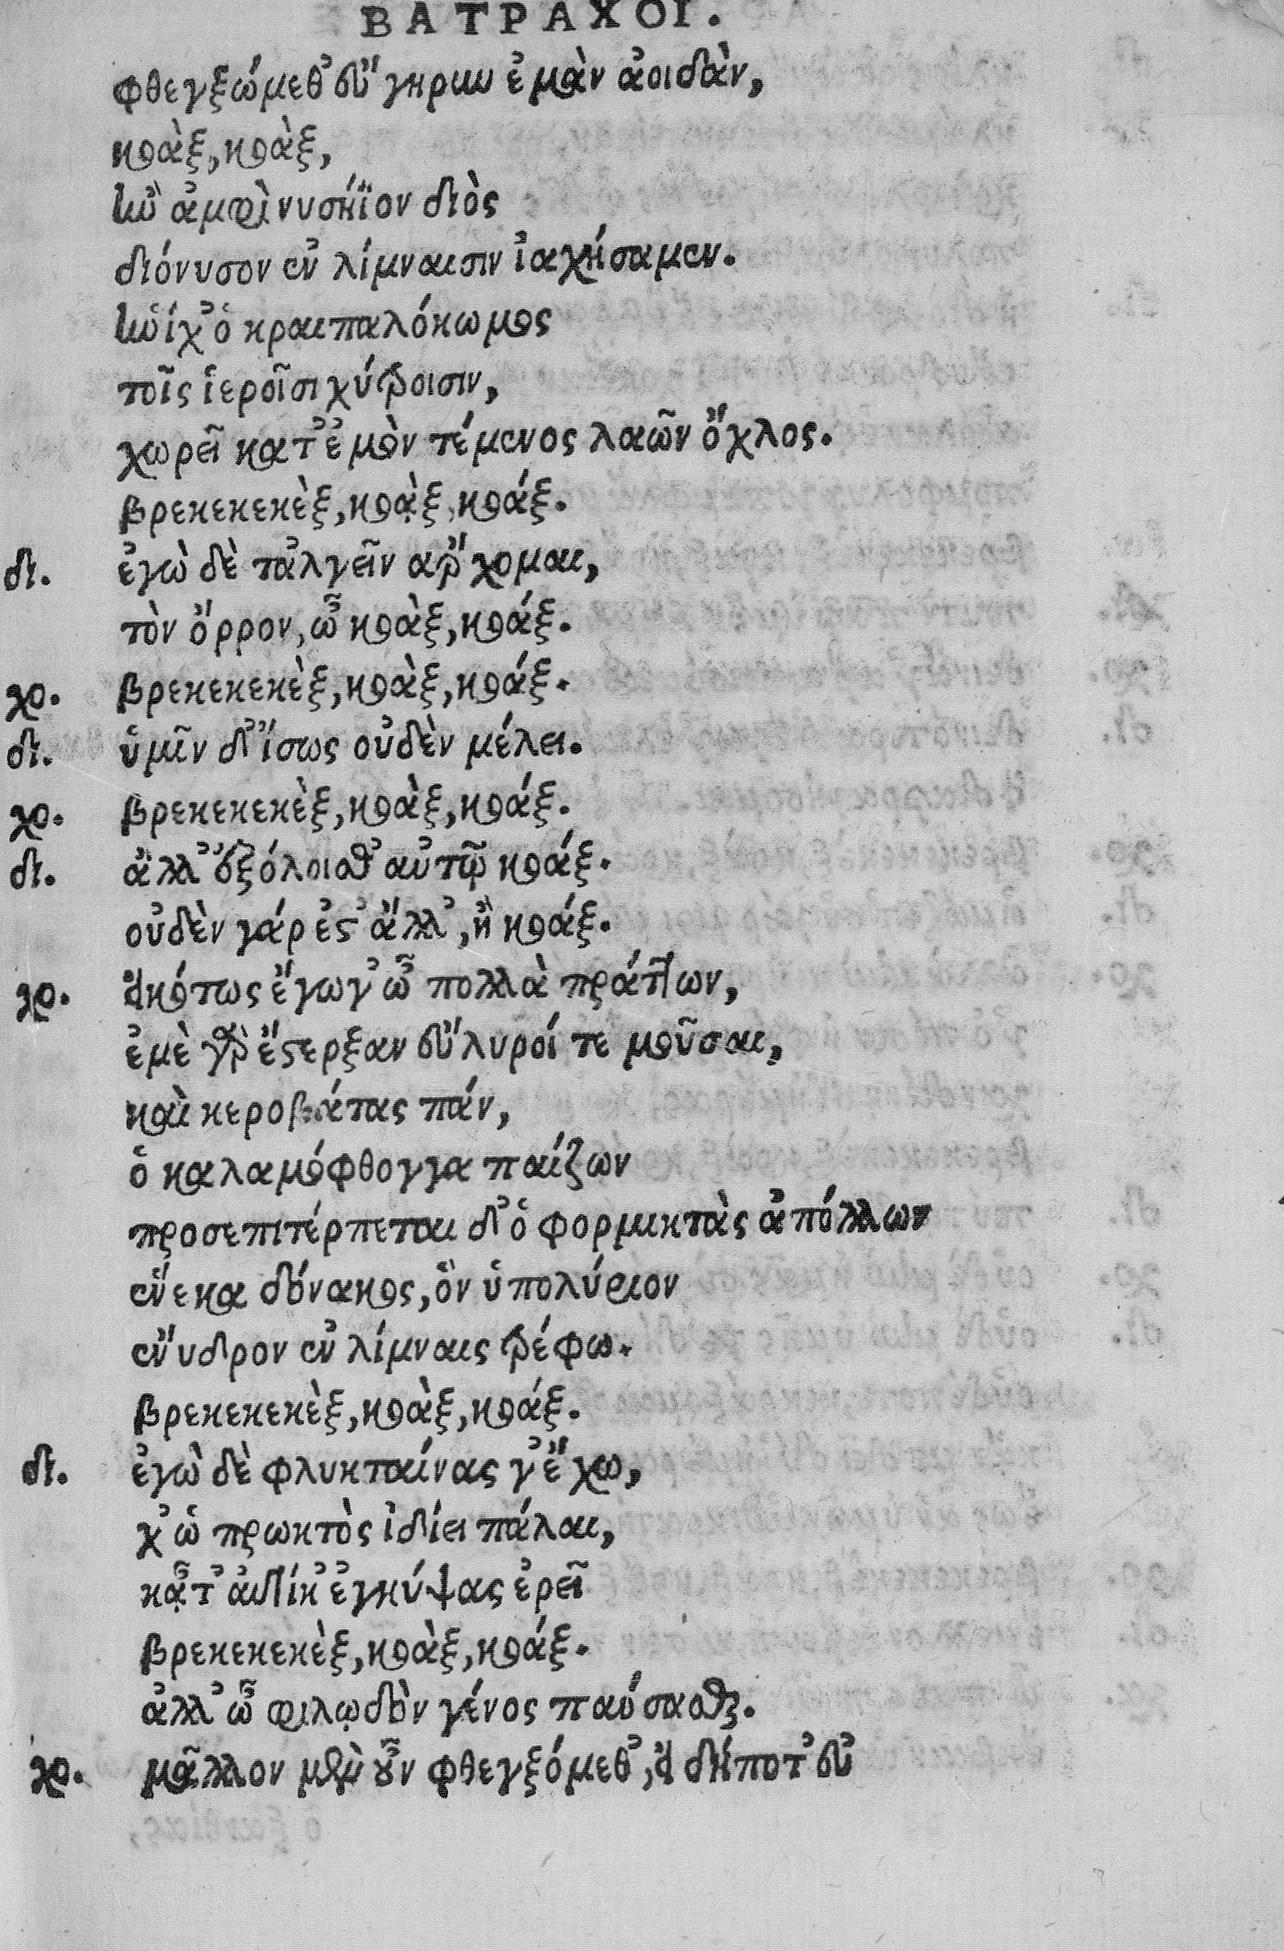 ΒΑΤΡΑΧΟΙ.
φθεγξώμεθ' εὔγηρυν ἐμὰν ἀοιδὰν,
κοὰξ, κοὰξ,
ἣν ἀμφὶ νυσήϊον διὸς
διόνυσον ἐν λίμναισιν ἰαχήσαμεν.
ἡνίχ' ὁ κραιπαλόκωμος
τοῖς ἱεροῖσι χύτροισιν,
χωρεῖ κατ' ἐμὸν τέμενος λαῶν ὄχλος.
βρεκεκεκὲξ, κοὰξ, κοάξ.
δι. ἐγὼ δὲ τἀλγεῖν ἄρχομαι,
τὸν ὄρρον, ὦ κοὰξ, κοάξ.
χο. βρεκεκεκὲξ, κοὰξ, κοάξ.
δι. ὑμῖν δ' ἴσως οὐδὲν μέλει.
χο. βρεκεκεκὲξ, κοὰξ, κοάξ.
δι. ἀλλ' ἐξόλοισθ' αὐτῷ κοάξ.
οὐδὲν γάρ ἐστ' ἄλλ', ἢ κοάξ.
χο. εἰκότως ἔγωγ' ὦ πολλὰ πράττων,
ἐμὲ γὰρ ἔστερξαν εὔλυροί τε μοῦσαι,
καὶ κεροβάτας πάν,
ὁ καλαμόφθογγα παίζων
προσεπιτέρπεται δ' ὁ φορμικτὰς ἀπόλλων
ἕνεκα δόνακος, ὃν ὑπολύριον
ἔνυδρον ἐν λίμναις τρέφω.
βρεκεκεκὲξ, κοὰξ, κοάξ.
δι. ἐγὼ δὲ φλυκταίνας γ' ἔχω,
χ' ὡ πρωκτὸς ἰδίει πάλαι,
κᾆτ' αὐτίκ' ἐγκύψας ἐρεῖ
βρεκεκεκὲξ, κοὰξ, κοάξ.
ἀλλ' ὦ φιλῳδὸν γένος παύσασθε.
χο. μᾶλλον μὲν οὖν φθεγξόμεθ', εἰ δήποτ' εὐ